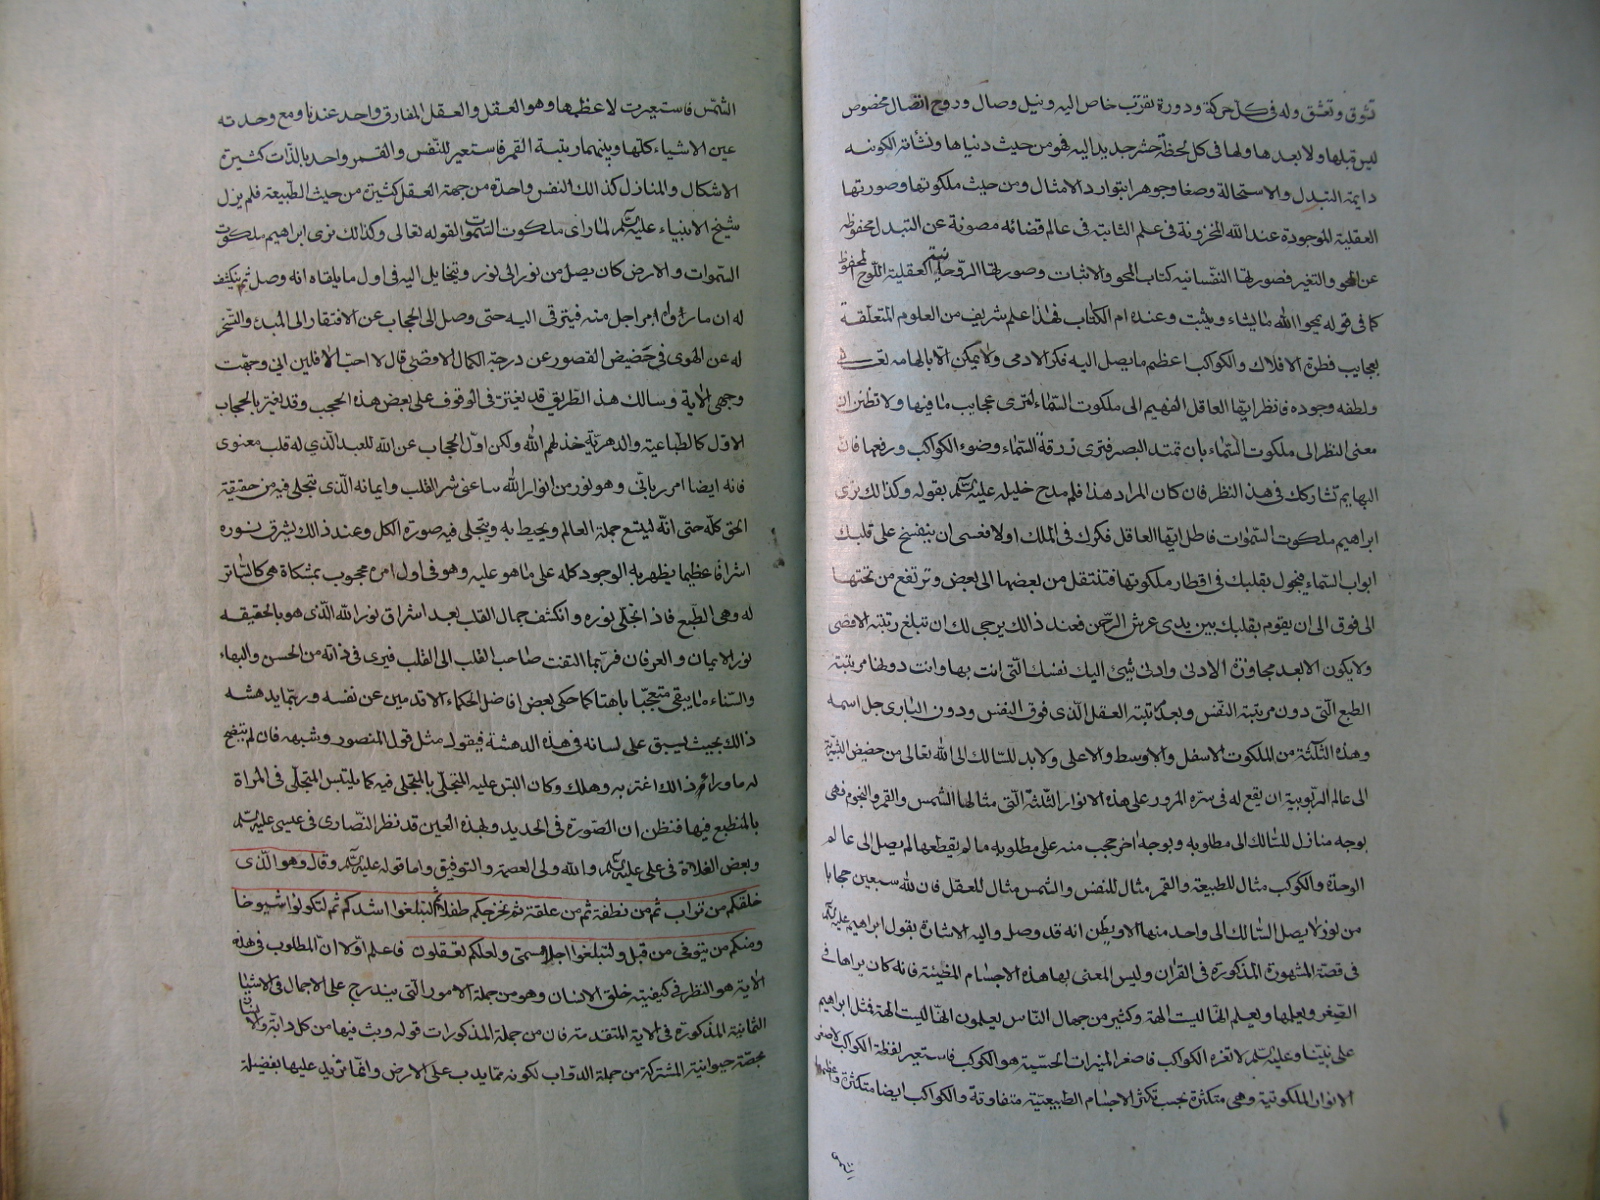 تشوق وتعشق وله فى كل حركة ودورة تقرب خاص اليه ونيل وصال وروح اتصال مخصوص
ليس قبلها ولا بعدها ولها فى كل لحظة حشر جديد اليه فهو من حيث دنياها ونشأته الكونيه
دايمة التبدل والاستحالة وصفا وجوهرا بتوارد الامثال ومن حيث ملكوتها وصورتها
العقلية الموجودة عند الله المخزونة فى علمه الثابتة فى عالم قضائه مصونة عن التبدل محفوظة
عن المحو والتغير فصورتها النفسانيه كتاب المحو والاثبات وصورتها الروحانية العقلية اللوح المحفوظ
كما فى قوله يمحوا الله ما يشاء ويثبت وعنده ام الكتاب فهذا علم شريف من العلوم المتعلقة
بعجايب فطرة الافلاك والكواكب اعظم ما يصل اليه فكر الادمى ولا يمكن الا بالهامه تعالى
ولطفه وجوده فانظر ايها العاقل الفهيم الى ملكوت السماء لترى عجايب ما فيها ولا تظنن ان
معنى النظر الى ملكوت السماء بان تمتد البصر فترى زرقة السماء وضوء الكواكب ورفعها فان
البهايم تشاركك فى هذا النظر فان كان المراد هذا فلم مدح خليله عليه السلم بقوله وكذالك نرى
ابراهيم ملكوت السموات فاطل ايها العاقل فكرك فى الملك اولا فعسى ان ينفسخ على قلبك
ابواب السماء فيجول بقلبك فى اقطار ملكوتها فتنتقل من بعضها الى بعض وترتفع من تحتها
الى فوق الى ان يقوم بقلبك بين يدى عرش الرحمن فعند ذالك يرجى لك ان تبلغ رتبته الاقصى
ولا يكون الا بعد مجاوزة الادنى وادنى شئ اليك نفسك التى انت بها وانت دونها مرتبته
الطبع التى دون مرتبة النفس وبعدها رتبة العقل الذى فوق النفس ودون البارى جل اسمه
وهذه الثلثة من الملكوت الاسفل والاوسط والاعلى ولا بد للسالك الى الله تعالى من حضيض البشرية
الى عالم الربوبية ان يقع له فى سيره المرور على هذه الانوار الثلثة التى مثالها الشمس والقمر والنجوم فهى
بوجه منازل للسالك الى مطلوبه وبوجه اخر حجب منه على مطلوبه ما لم يقطعها لم يصل الى عالم
الوحدة والكوكب مثال للطبيعة والقمر مثال للنفس والشمس مثال للعقل فان لله سبعين حجابا
من نور لا يصل السالك الى واحد منها الا ويظن انه قد وصل واليه الاشارة بقول ابراهيم عليه السلم
فى قصته المشهورة المذكورة فى القران وليس المعنى بها هذه الاجسام المضيئة فانه كان يراها فى
الصغر ويعلمها ويعلم انها ليست الهة وكثير من جهال الناس يعلمون انها ليست الهة فمثل ابراهيم
على نبينا وعليه السلم لا تغره الكواكب فاصغر المنيرات الحسية هو الكوكب فاستعير لفظة الكواكب لاصغر
الانوار الملكوتية وهى متكثرة بحسب تكثر الاجسام الطبيعتية متفاوتة والكواكب ايضا متكثرة واعظمها
الشمس فاستعيرت لاعظمها وهو العقل والعقل المفارق واحد عندنا ومع وحدته
عين الاشياء كلها وبينهما رتبة القمر فاستعير للنفس والقمر واحد بالذات كثيرة
الاشكال والمنازل كذالك النفس واحدة من جهة العقل كثيرة من حيث الطبيعة فلم يزل
شيخ الانبياء عليه السلم لما راى ملكوت السموات القوله تعالى وكذالك نرى ابراهيم ملكوت
السموات والارض كان يصل من نور الى نور ويتخايل اليه فى اول ما يلقاه انه وصل ثم ينكشف
له ان ما راه امر اجل منه فيترقى اليه حتى وصل الى الحجاب عن الافتقار الى المبدء والتسخر
له عن الهوى فى حضيض القصور عن درجة الكمال الاقصى قال لا احب الافلين انى وجهت
وجهى الاية وسالك هذا الطريق قد يغتر فى الوقوف على بعض هذه الحجب وقد يغتر بالحجاب
الاول كالطباعية والدهرية خذلهم الله ولكن اول الحجاب عن الله للعبد الذى له قلب معنوى
فانه ايضا امر ربانى وهو نور من انوار الله ساعنى شر القلب وايمانه الذى تتجلى فيه من حقيقة
الحق كله حتى انه ليتسع جملة العالم ويحيط به ويتجلى فيه صورة الكل وعند ذالك يشرق نوره
اشراقا عظيما يظهر به الوجود كله على ما هو عليه وهو فى اول امره محجوب بمشكاة هى كالساتر
له وهى الطبع فاذا تجلى نوره وانكشف جمال القلب بعد اشراق نور الله الذى هو بالحقيقه
نور الايمان والعرفان فربما التفت صاحب القلب الى القلب فيرى فى ذاته من الحسن والبهاء
والسناء ما يبقى متعجبا باهتا كما حكى بعض افاضل الحكماء الاقدمين عن نفسه وربما يدهشه
ذالك بحيث يسبق على لسانه فى هذه الدهشة فيقول مثل قول المنصور وشبهه فان لم يتضح
له ما وراء ذالك اغتر به وهلك وكان التبس عليه المتجلى بالمتجلى فيه كما يلتبس المتجلى فى المراة
بالمنطبع فيها فتظن ان الصورة فى الحديد ولهذه العين قد نظر النصارى فى عيسى عليه السلم
وبعض الغلاة فى على عليه السلم والله ولى العصمة والتوفيق واما قوله عليه السلم وقال وهو الذى
خلقكم من تراب ثم من نطفة ثم من علقة ثم نخرجكم طفلا ثم لتبلغوا اشدكم ثم لتكونوا شيوخا
ومنكم من يتوفى من قبل ولتبلغوا اجلا مسمى ولعلكم تعقلون فاعلم اولا ان المطلوب فى هذه
الاية هو النظر فى كيفية خلق الانسان وهو من جملة الامور التى يندرج على الاجمال فى الاشياء
الثمانية المذكورة فى الاية المتقدمة فان من جملة المذكورات قوله وبث فيها من كل دابة والانسان
بحصة حيوانية المشتركة من جملة الدواب لكونه مما يدب على الارض وانما تزيد عليها بفضيلة